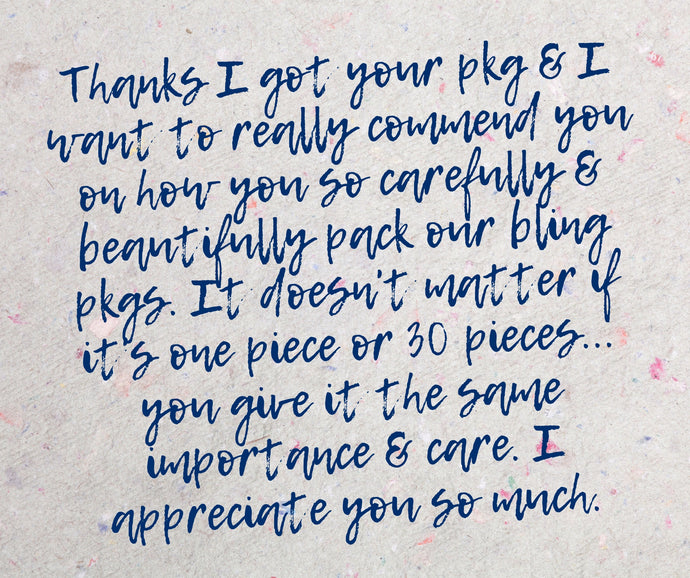 Thanks I got your pkg & I
want to really commend you
on how you so carefully &
beautifully pack our bling
pkgs. It doesn't matter if
it's one piece or 30 pieces...
you give it the same
importance & care. I
appreciate you so much.